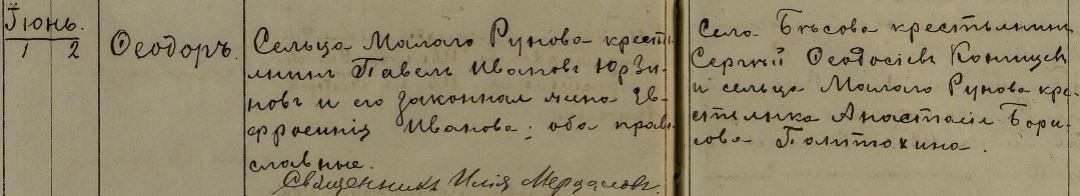 Іюнь.
1 2
Ѳеодоръ.
Сельца Малаго Рунова крестья-
нинъ Павелъ Ивановъ Юрзи-
новъ и его законная жена Ев-
фросинія Иванова; оба право-
славные.
Священникъ Илія
Села Бѣсова крестьянинъ
Сергѣй Ѳеодосіевъ
и сельца Малаго Рунова кре-
стьянка Анастасія Бори-
сова